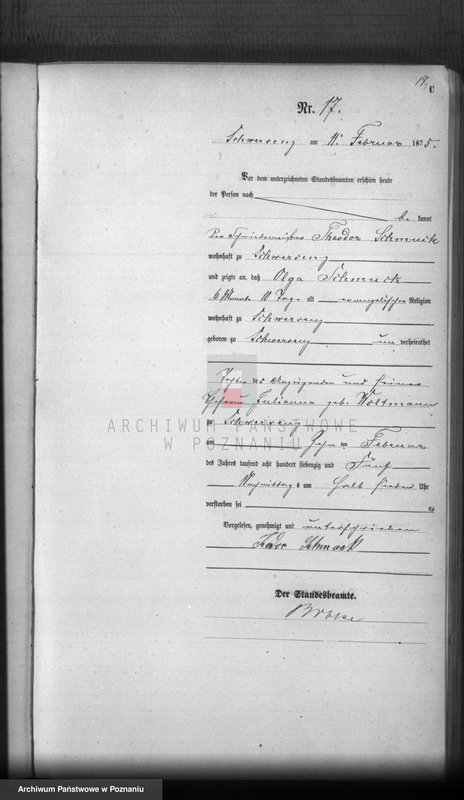 17.
C
Nr. 17.
Schwersenz am 11t Februar 1875.
Vor dem unterzeichneten Standesbeamten erschien heute
der Person nach
be kannt
Der Schmiedemeister Theodor Schmuck
wohnhaft zu Schwersenz
und zeigte an, daß Olga Schmuck
6 Monate 10 Tage alt evangelischer Religion
wohnhaft zu Schwersenz
geboren zu Schwersenz un verheirathet
Tochter des Anzeigenden und seiner
Ehefrau Julianna geb. Woltmann
zu Schwersenz
am Zehn ten Februar
des Jahres tausend acht hundert siebenzig und Fünf
Nachmittag s um halb sieben Uhr
verstorben sei
Vorgelesen, genehmigt und unterschrieben
Theodor Schmuck
Der Standesbeamte.
ARCHIWUM PAŃSTWOWE
W POZNANIU
Archiwum Państwowe w Poznaniu